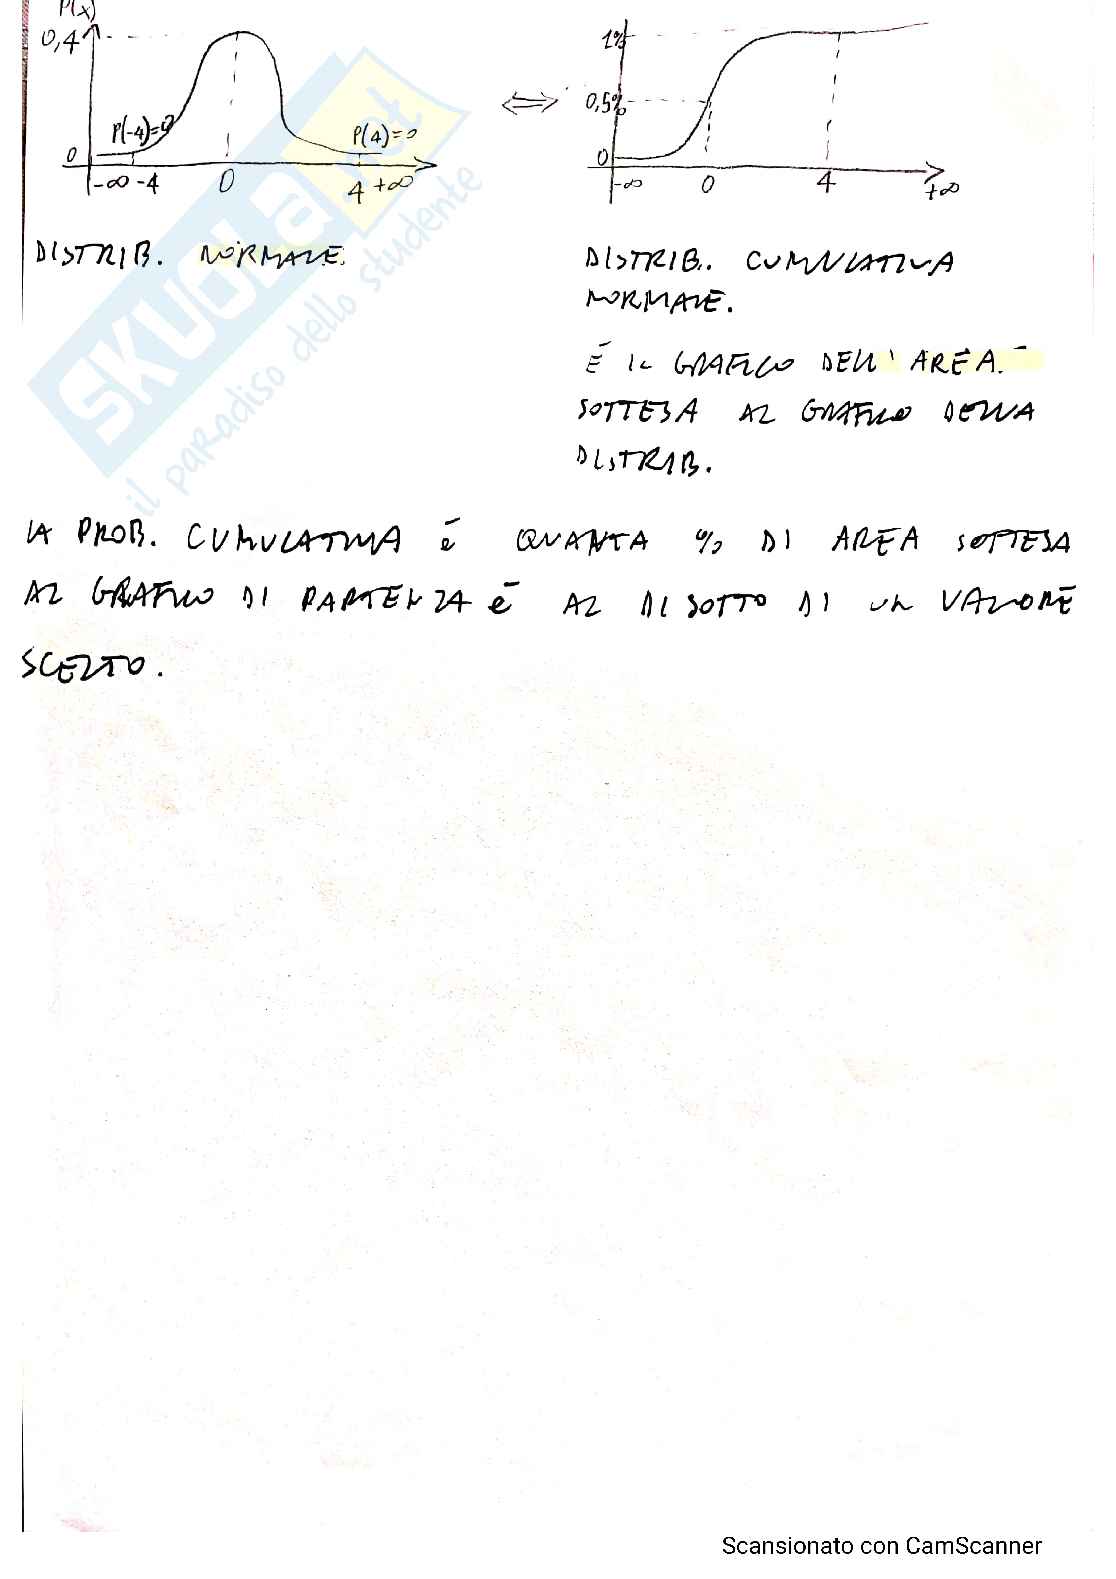 P(x)
0,4
P(-4)=0
P(4)=0
0
-∞ -4
0
4 +∞
⇔
1%
0,5%
0
-∞
0
4
+∞
DISTRIB. NORMALE.
DISTRIB. CUMULATIVA
NORMALE.
È IL GRAFICO DELL' AREA
SOTTESA AL GRAFICO DELLA
DISTRIB.
LA PROB. CUMULATIVA È QUANTA % DI AREA SOTTESA
AL GRAFICO DI PARTENZA È AL DI SOTTO DI UN VALORE
SCELTO.
SKUOLA.net
il paradiso dello studente
Scansionato con CamScanner